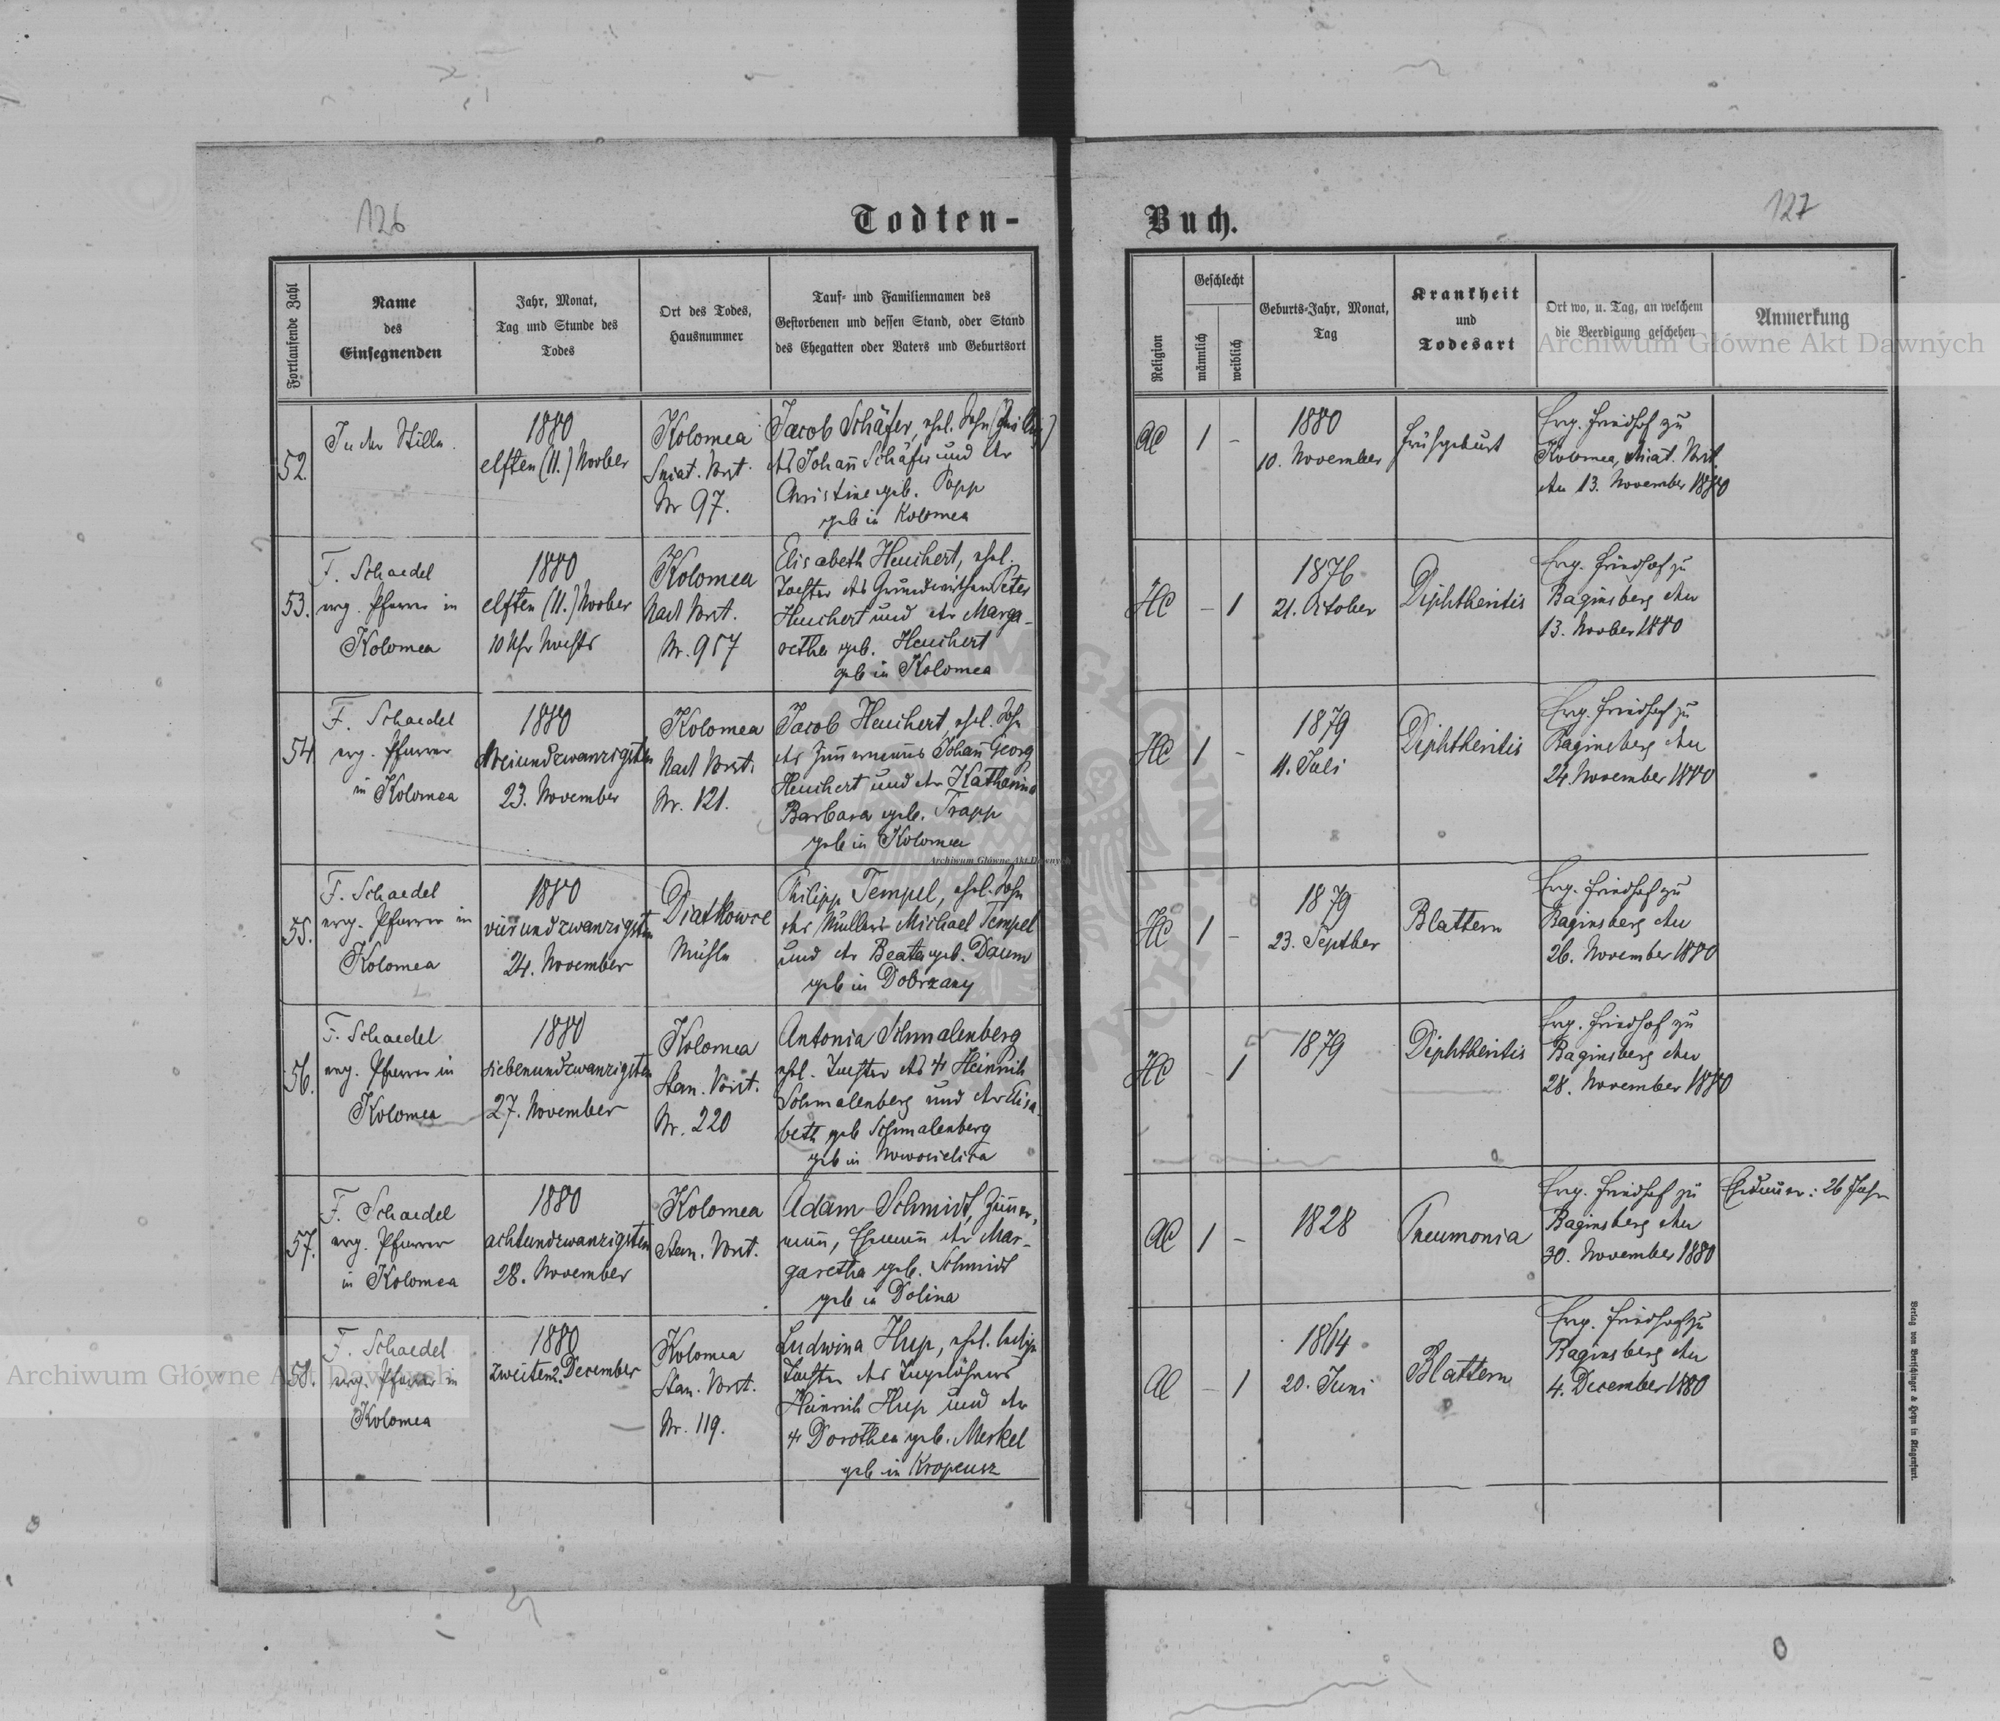 126
Todten-
Fortlaufende Zahl
Name
des
Einsegnenden
Jahr, Monat,
Tag und Stunde des
Todes
Ort des Todes,
Hausnummer
Tauf- und Familiennamen des
Gestorbenen und dessen Stand, oder Stand
des Ehegatten oder Vaters und Geburtsort
52.
In der Stille.
1880
elften (11.) Novber
Kolomea
Sniat. Vorst.
Nr 97.
Jacob Schäfer, ehel. Sohn
des Johañ Schäfer und der
Christine geb. Popp
geb in Kolomea
53.
F. Schaedel
evg. Pfarrer in
Kolomea
1880
elften (11.) Novber
10 Uhr Nachts
Kolomea
Nad. Vorst.
Nr. 957
Elisabeth Heuchert, ehel.
Tochter des Grundwirthen Peter
Heuchert und der Marga-
retha geb. Heuchert
geb in Kolomea
54
F. Schaedel
evg. Pfarrer
in Kolomea
1880
dreiundzwanzigsten
23. November
Kolomea
Nad Vorst.
Nr. 121.
Jacob Heuchert, ehel. Sohn
des Zim̃ermañs Johañ Georg
Heuchert und der Katharina
Barbara geb. Trapp
geb in Kolomea
55.
F. Schaedel
evg. Pfarrer in
Kolomea
1880
vierundzwanzigsten
24. November
Diatkowce
Mühle
Philipp Tempel, ehel. Sohn
des Müllers Michael Tempel
und der Beata geb. Daum
geb in Dobrzany
56.
F. Schaedel
evg. Pfarrer in
Kolomea
1880
siebenundzwanzigsten
27. November
Kolomea
Stan. Vorst.
Nr. 220
Antonia Schmalenberg
ehel. Tochter des † Heinrich
Schmalenberg und der Elisa-
beth geb Schmalenberg
geb in Nowosielica
57.
F. Schaedel
evg. Pfarrer
in Kolomea
1880
achtundzwanzigsten
28. November
Kolomea
Stan. Vorst.
Adam Schmidt, Zim̃er-
mañ, Ehemañ der Mar-
garetha geb. Schmidt
geb in Dolina
58.
F. Schaedel
evg. Pfarrer in
Kolomea
1880
zweiten 2. December
Kolomea
Stan. Vorst.
Nr. 119.
Ludwina Hup, ehel. ledige
Tochter des Tagelöhners
Heinrich Hup und der
† Dorothea geb. Merkel
geb in Kropeusz
127
Buch.
Religion
Geschlecht
männlich
weiblich
Geburts-Jahr, Monat,
Tag
Krankheit
und
Todesart
Ort wo, u. Tag, an welchem
die Beerdigung geschehen
Anmerkung
AC
1
-
1880
10. November
Frühgeburt
Evg. Friedhof zu
Kolomea, Sniat. Vorst.
den 13. November 1880
HC
-
1
1876
21. October
Diphtheritis
Evg. Friedhof zu
Baginsberg den
13. Novber 1880
HC
1
-
1879
11. Juli
Diphtheritis
Evg. Friedhof zu
Baginsberg den
24 November 1880
HC
1
-
1879
23. Septber
Blattern
Evg. Friedhof zu
Baginsberg den
26. November 1880
HC
-
1
1879
Diphtheritis
Evg. Friedhof zu
Baginsberg den
28. November 1880
AC
1
-
1828
Pneumonia
Evg. Friedhof zu
Baginsberg den
30. November 1880
Ehedauer: 26 Jahre
AC
-
1
1864
20. Juni
Blattern
Evg. Friedhof zu
Baginsberg den
4. December 1880
Verlag von Bertschinger & Heyn in Klagenfurt.
Archiwum Główne Akt Dawnych
Archiwum Główne Akt Dawnych
Archiwum Główne Akt Dawnych